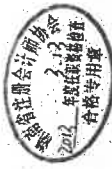 省注册会计师协
2012 年度任职资格检查
合格专用章